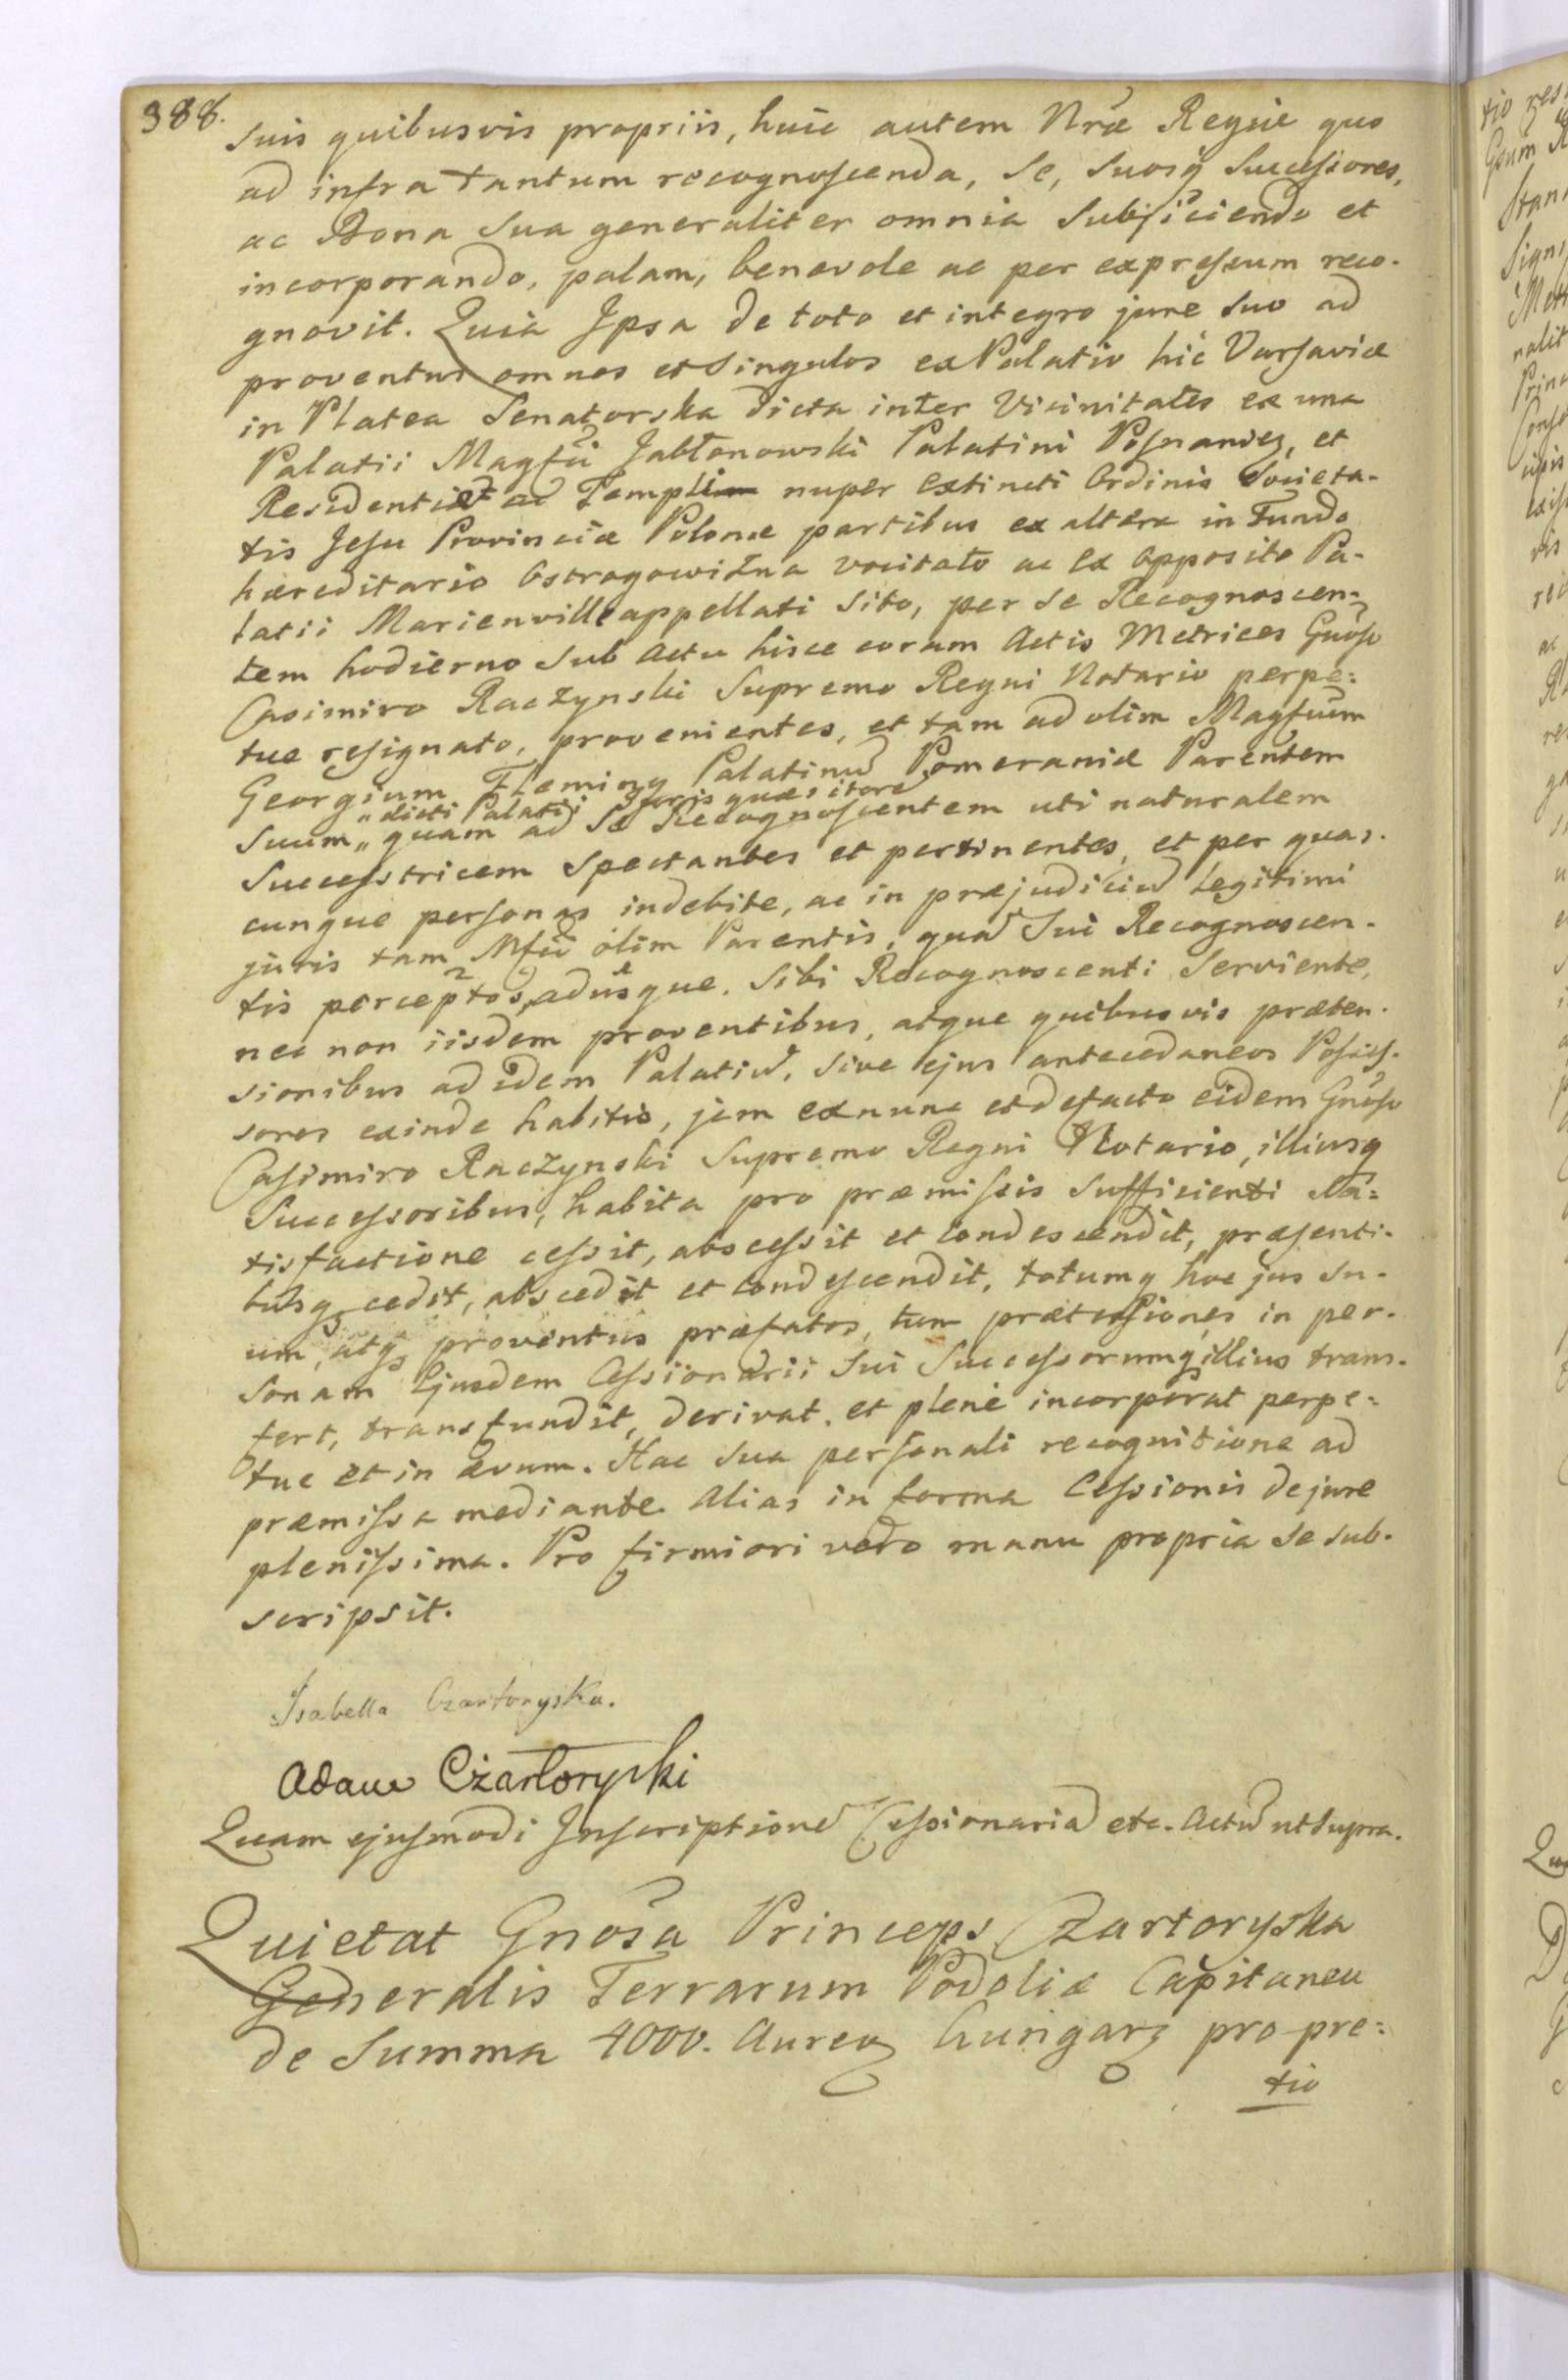 388.
suis quibusvis propriis, huic autem Nrae Regiae quo
ad infra tantum recognoscenda, se, suosq Successores,
ac Bona sua generaliter omnia subjiciendo et
incorporando, palam, benevole ac per expressum reco-
gnovit. Quia Ipsa de toto et integro jure suo ad
proventus omnes et singulos ex Palatio hic Varsaviae
in Platea Senatorska dicta inter Vicinitates ex una
Palatii Magfci Jabłonowski Palatini Posnanien, et
Residentiae ac Templi nuper extincti Ordinis Societa-
tis Jesu Provinciae Polonae partibus ex altera in Fundo
haereditario Ostrogowizna vocitato ac ex opposito Pa-
latii Marienville appellati sito, per se Recognoscen-
tem hodierno sub actu hisce coram Actis Metrices Gnoso
Casimiro Raczynski Supremo Regni Notario perpe-
tue resignato, provenientes, et tam ad olim Magfcum
Georgium Fleming Palatinum Pomeraniae Parentem
" dicti Palatii juris quaesitorem
suum " quam ad se Recognoscentem uti naturalem
Successtricem spectantes et pertinentes, et per quas-
cunque personas indebite, ac in praejudicium legitimi
juris tam Mfci olim Parentis, quam sui Recognoscen-
tis perceptos, adusque sibi Recognoscenti serviente,
nec non iisdem proventibus, atque quibusvis praeten-
sionibus ad idem Palatium, sive ejus antecedaneos Posses-
sores exinde habitis, jam exnunc et defacto eidem Gnoso
Casimiro Raczynski Supremo Regni Notario, illiusq
Successoribus, habita pro praemissis sufficienti sa-
tisfactione cessit, abscessit et condescendit, praesenti-
busq cedit, abscedit et condescendit, totumq hoc jus su-
um, atq proventus praefatos, tum praetensiones in per-
sonam Ejusdem Cessionarii sui Successorumq illius trans-
fert, transfundit, derivat, et plene incorporat perpe-
tue et in aevum. Hac sua personali recognitione ad
praemissa mediante. Alias in forma Cessionis de jure
plenissima. Pro firmiori vero manu propria se sub-
scripsit.
Isabella Czartoryska.
Adam Czartoryski
Quam ejusmodi Inscriptionem Cessionariam etc. Actum ut supra.
Quietat Gnosa Princeps Czartoryska
Generalis Terrarum Podoliae Capitanea
de Summa 4000. Aureor Hungar pro pre-
tio